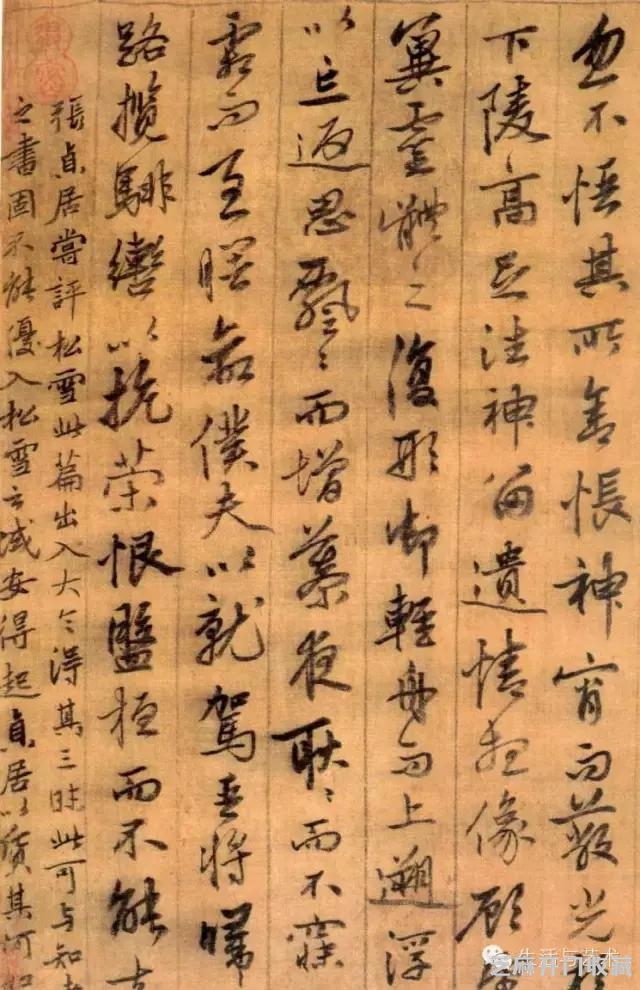 忽不悟其所舍悵神宵而蔽光
下陵高足往神留遺情想像顧
冀靈體之復形御輕舟而上遡浮
以忘返思飄〻而增慕夜耿〻而不寐
霜而至曙命僕夫以就駕吾將歸
路攬騑轡以抗策恨盤桓而不能去
張貞居嘗評松雪此篇出入大令得其三昧此可与知者
之書固不能優入松雪之域安得起貞居以質其何如
生活与艺术
芝麻开门收藏